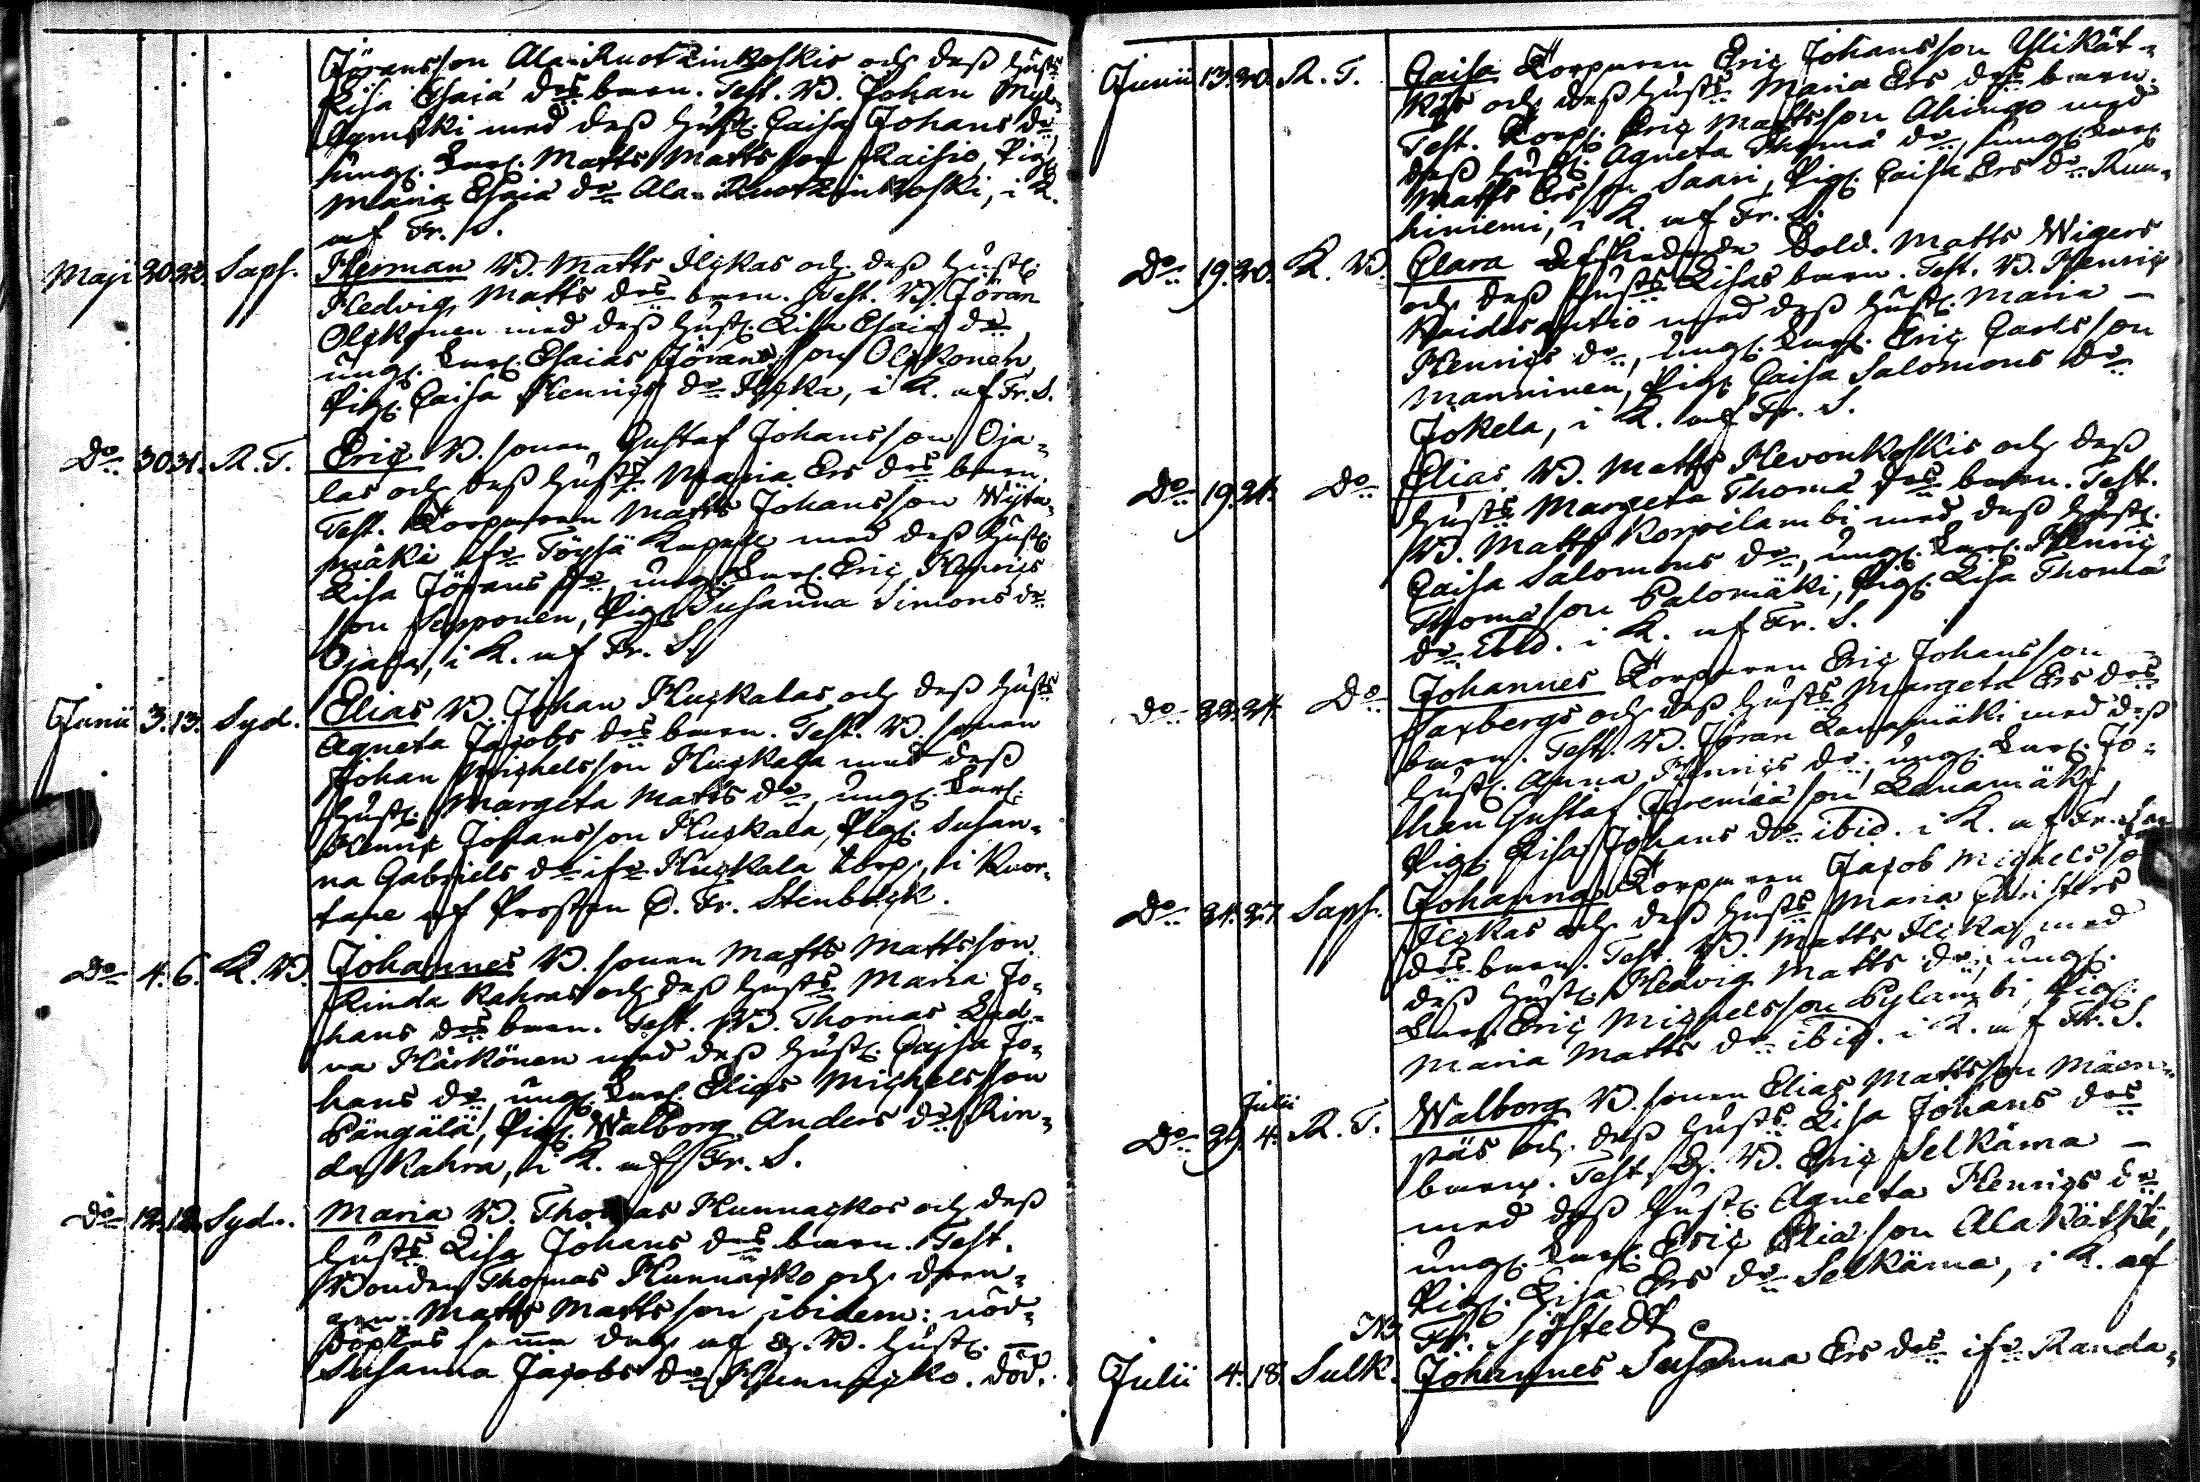 Jöransson Ala-Ruotzinkoskis och dess hust:s
Lisa Esaiæ d:rs barn. Test. B. Johan Myl-
med dess hust. Caisa Johans d:r,
ung. karl. Matts Mattsson Raisio, Pig.
Maria Esaiæ d:r Ala-Ruotzinkoski, i K.
af Fr. S.
Maji 30. 32. Saps. Herman B. Matts Ilckas och dess hust:
Hedvig Matts d:rs barn. Test. B. Jöran
Olckonen med dess hust. Lisa Esaiæ d:r
ung. karl. Esaias Jöransson Olckonen
Pig. Caisa Henrics d:r Ilcka, i K. af Fr. S.
D:o 30. 31. R. T. Eric B. sonen Gustaf Johansson Oja-
las och dess hust:s Maria Ers d:rs barn.
Test. Torparen Matts Johansson Wijta-
mäki ifr. Töysä Kapell med dess hust.
Lisa Jörans d:r, ung. karl. Eric Henrics
son Sepponen, Pig. Susanna Simons d:r
Ojala, i K. af Fr. S.
Junii 3. 13. Syd. Elias B. Johan Huckalas och dess hust:s
Agneta Jacobs d:rs barn. Test. B. sonen
Johan Michelsson Huckala med dess
hust. Margeta Matts d:r, ung. karl.
Henric Johansson Huckala, Pig. Susan-
na Gabriels d:r ifr. Huckala torp, i Kuor-
tane af Prosten C. Fr. Stenbäck.
D:o 4. 6. K. B. Johannes B. sonen Matts Mattsson
Rinda Kahras och dess hust:s Maria Jo-
hans d:rs barn. Test. B. Thomas
Härkönen med dess hust. Cajsa Jo-
hans d:r, ung. karl. Elias Michelsson
Pängälä, Pig. Walborg Anders d:r Rin-
da Kahra, i K. af Fr. S.
D:o 12. 12. Syd. Maria B. Thomas Hunnackos och dess
hust:s Lisa Johans d:rs barn. Test.
Bonden Thomas Hunnacko och dren-
gen Matts Mattsson ibidem: nöd-
döptes samma dag af B. hust.
Susanna Jacobs d:r Hunnacko. död.
Junii 13. 20. R. T. Caisa Torparen Eric Johansson Ylikät-
käs och dess hust:s Maria Ers d:rs barn.
Test. Torp. Eric Mattsson Ahingo med
dess hust. Agneta Thomæ d:r, ung. karl.
Matts Ersson Saari, Pig. Caisa Ers d:r Ruu-
hiniemi, i K. af Fr. S.
D:o 19. 20. K. B. Clara Afskedade Sold. Matts Wigers
och dess hust:s Lisas barn. Test. B. Henric
med dess hust. Maria
Henrics d:r, ung. karl. Eric Carlsson
Manninen, Pig. Caisa Salomons d:r
Jokela, i K. af Fr. S.
D:o 19. 24. D:o Elias B. Matts Hevonkoskis och dess
hust:s Margeta Thomæ d:rs barn. Test.
B. Matts Korpelambi med dess hust.
Caisa Salomons d:r, ung. karl. Henric
Thomæson Palomäki, Pig. Lisa Thomæ
d:r ibid. i K. af Fr. S.
D:o 22. 24. D:o Johannes Torparen Eric Johansson
Saxbergs och dess hust:s Margeta Ers d:rs
barn. Test. B. Jöran Lanamäki med dess
hust. Anna Henrics d:r, ung. karl. Jo-
han Gustaf Jeremiæson Lanamäki,
Pig. Lisa Johans d:r ibid. i K. af Fr. S.
D:o 24. 27. Saps. Johanna Torparen Jacob Michelsson
Ilckas och dess hust:s Maria Christers
d:rs barn. Test. B. Matts Ilcka med
dess hust. Hedvig Matts d:r, ung.
karl. Eric Michelsson Pylambi, Pig.
Maria Matts d:r ibid. i K. af Fr. S.
Julii
D:o 29. 4. R. T. Walborg B. sonen Elias Mattsson Mäen-
pääs och dess hust:s Lisa Johans d:rs
barn. Test. B. Eric Selkäma
med dess hust. Agneta Henrics d:r
ung. karl. Eric Eliæson Alakätkä,
Pig. Lisa Ers d:r Selkäma, i K. af
NB Fr. Sjöstedt
Julii 4. 18. Sulk. Johannes Susanna Ers d:rs ifr. Randa-